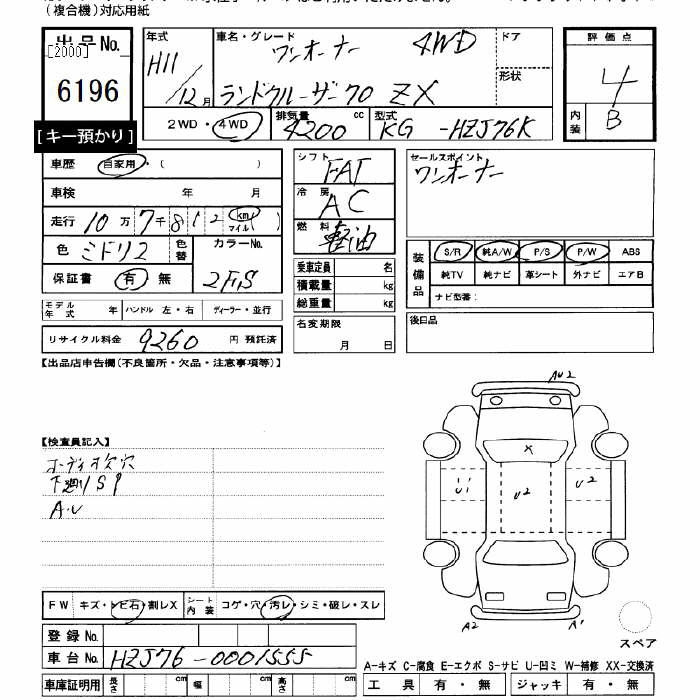 (複合機)対応用紙
出品No.
[2000]
6196
[キー預かり]
年式
H11
/12月
車名・グレード
ワンオーナー 4WD
ランドクルーザー70 ZX
ドア
形状
評価点
4
内装
B
2WD・4WD
排気量
4200
cc
型式
KG -HZJ76K
車歴
自家用・( )
車検 年 月
走行 10万7千812 km マイル ( )
色
ミドリ2
色替
カラーNo.
2FIS
保証書
有 無
モデル年式 年 ハンドル 左・右 ディーラー・並行
リサイクル料金 9260 円 預託済
シフト
FAT
冷房
AC
燃料
軽油
乗車定員 名
積載量 kg
総重量 kg
名変期限
月 日
セールスポイント
ワンオーナー
装備品
S/R 純A/W P/S P/W ABS
純TV 純ナビ 革シート 外ナビ エアB
ナビ型番:
後日品
【出品店申告欄(不良箇所・欠品・注意事項等)】
【検査員記入】
オーディオ欠穴
下廻りSP
A.U
AU2
X
U1
U2
U2
A2
A1
スペア
FW キズ・トビ石・割レX
シート内装 コゲ・穴・汚レ・シミ・破レ・スレ
登録No.
車台No. HZJ76-0001555
車庫証明用 長さ cm 幅 cm 高さ cm
A-キズ C-腐食 E-エクボ S-サビ U-凹ミ W-補修 XX-交換済
工具 有・無 ジャッキ 有・無